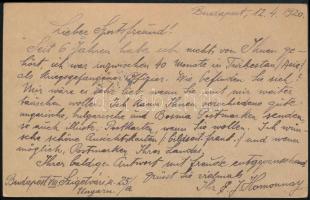 Budapest, 12.4.1920.
Lieber Sportsfreund!
Seit 6 Jahren habe ich nichts von Ihnen ge-
hört, ich war inzwischen 40 Monate in Turkestan (Asien)
als Kriegsgefangener Offizier. Wie befinden Sie sich?
Mir wäre es sehr lieb wenn Sie mit mir weiter
tauschen wollen. Ich kann Ihnen verschiedene gute
ungarische, bulgarische und Bosnia Postmarken senden,
so auch Postkarten wenn Sie wollen. Ich wün-
sche schöne Ansichtskarten (bildseit. frank.) und wenn
möglich, Postmarken Ihres Landes.
Ihrer baldige Antwort mit Freude entgegensehend
grüsst Sie vielmals
Ihr G. J. Homonnay
Budapest VIII. Szigetvári u.
Ungarn.